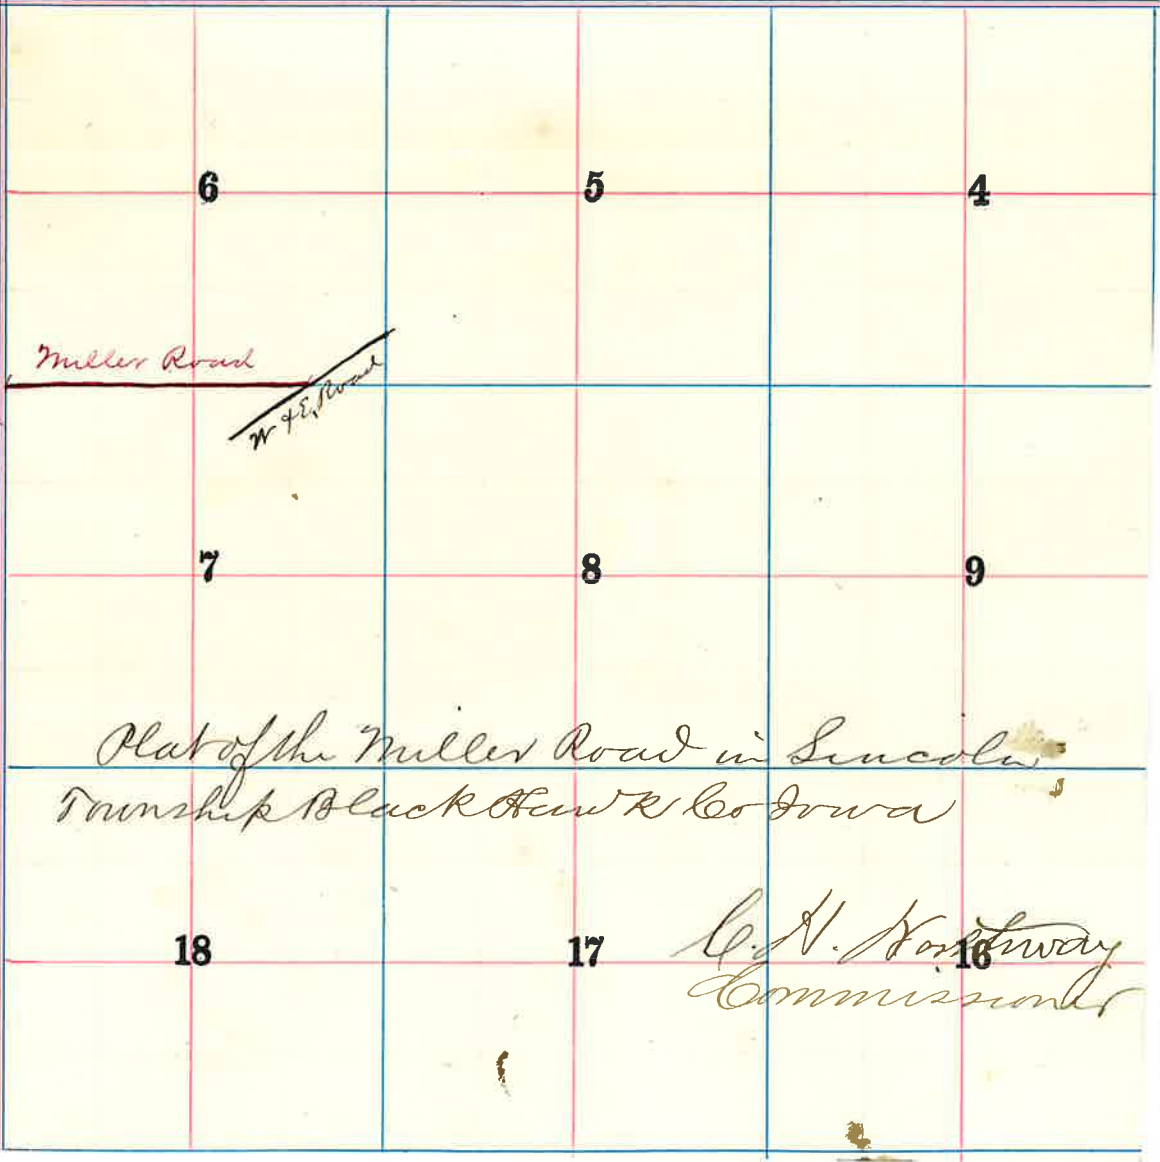 6 5 4
Miller Road
W & E. Road
7 8 9
Plat of the Miller Road in Lincoln
Township Black Hawk Co Iowa
C. H.
18 17 16
Commissioner